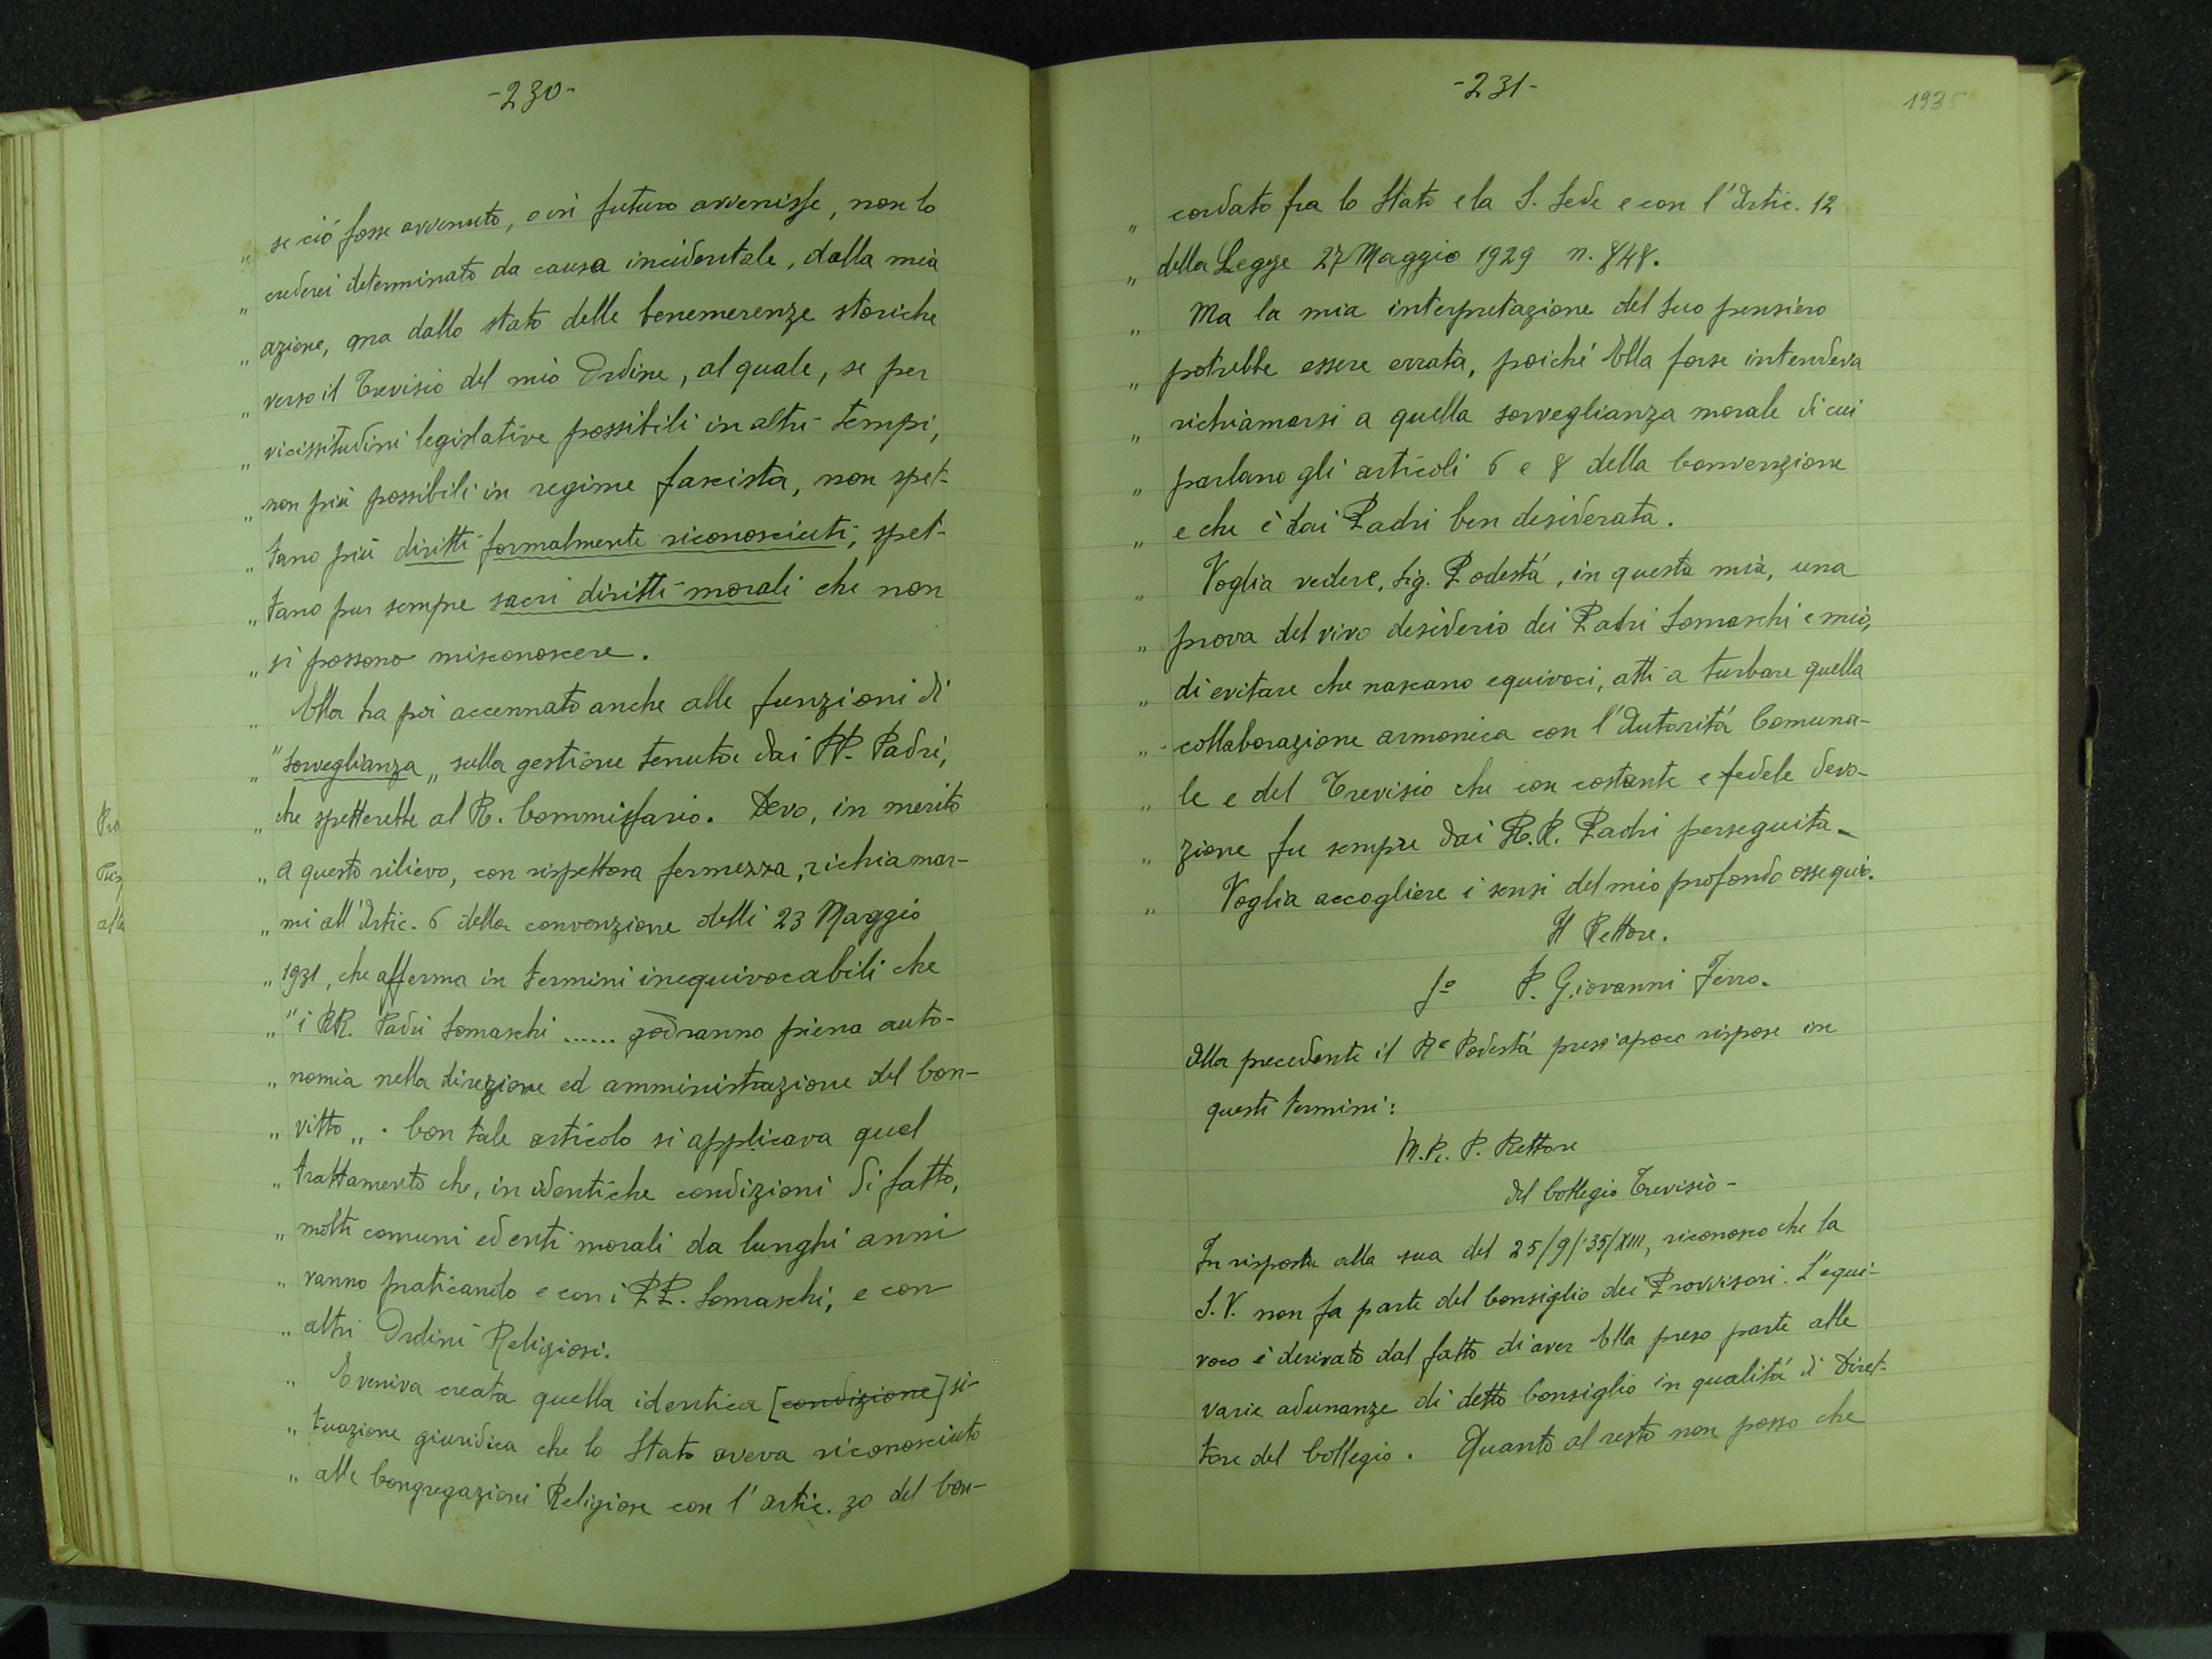 -230-
„ se ciò fosse avvenuto, o in futuro avvenisse, non lo
„ crederei determinato da causa incidentale, dalla mia
„ azione, ma dallo stato delle benemerenze storiche
„ verso il Trevisio del mio Ordine, al quale, se per
„ vicissitudini legislative possibili in altri tempi,
„ non più possibili in regime fascista, non spet-
„ tano più diritti formalmente riconosciuti, spet-
„ tano pur sempre sacri diritti morali che non
„ si possono misconoscere.
„ Ella ha poi accennato anche alle funzioni di
„ "sorveglianza„ sulla gestione tenuta dai PP. Padri,
„ che spetterebbe al R. Commissario. Devo, in merito
„ a questo rilievo, con rispettosa fermezza, richiamar-
„ mi all'Artic. 6 della convenzione delli 23 Maggio
„ 1931, che afferma in termini inequivocabili che
„ "i RR. Padri Somaschi ...... godranno piena auto-
„ nomia nella direzione ed amministrazione del Con-
„ vitto„. Con tale articolo si applicava quel
„ trattamento che, in identiche condizioni di fatto,
„ molti comuni ed enti morali da lunghi anni
„ vanno praticando e con i PP. Somaschi, e con
„ altri Ordini Religiosi.
„ E veniva creata quella identica [condizione] si-
„ tuazione giuridica che lo Stato aveva riconosciuto
„ alle Congregazioni Religiose con l'artic. 30 del Con-
Pro
alla
-231-
1935
„ cordato fra lo Stato e la S. Sede e con l'Artic. 12
„ della Legge 27 Maggio 1929 n. 848.
„ Ma la mia interpretazione del Suo pensiero
„ potrebbe essere errata, poiché Ella forse intendeva
„ richiamarsi a quella sorveglianza morale di cui
„ parlano gli articoli 6 e 8 della Convenzione
„ e che è dai Padri ben desiderata.
„ Voglia vedere, Sig. Podestà, in questa mia, una
„ prova del vivo desiderio dei Padri Somaschi e mio,
„ di evitare che nascano equivoci, atti a turbare quella
„ collaborazione armonica con l'Autorità Comuna-
„ le e del Trevisio che con costante e fedele devo-
„ zione fu sempre dai R.R. Padri perseguita.
„ Voglia accogliere i sensi del mio profondo ossequio.
Il Rettore.
fo P. Giovanni Ferro.
Alla precedente il Re Podestà press'apoco rispose in
questi termini:
M.R. P. Rettore
del Collegio Trevisio-
In risposta alla sua del 25/9/'35/XIII, riconosco che la
S.V. non fa parte del Consiglio dei Provvisori. L'equi-
voco è derivato dal fatto di aver Ella preso parte alle
varie adunanze di detto Consiglio in qualità di Diret-
tore del Collegio. Quanto al resto non posso che